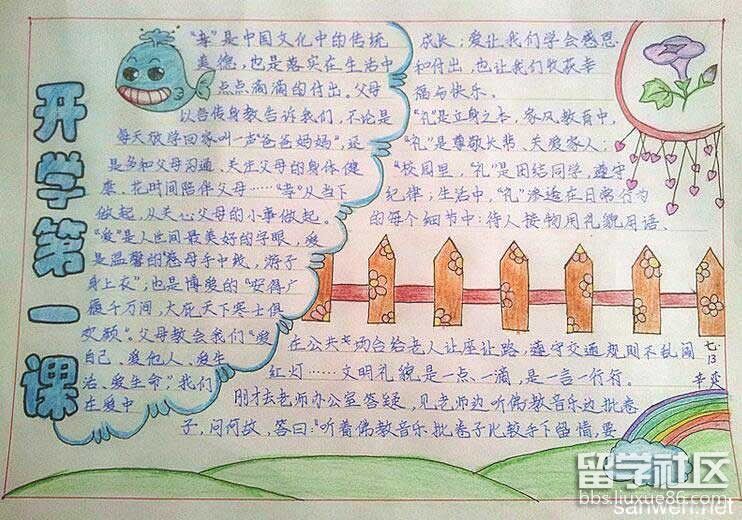 开学第一课
"孝"是中国文化中的传统
美德，也是落实在生活中
点点滴滴的付出。父母
以言传身教告诉我们，不论是
每天放学回家叫一声"爸爸妈妈"，还
是多和父母沟通、关注父母的身体健
康、花时间陪伴父母……"孝"从当下
做起，从关心父母的小事做起。
"爱"是人世间最美好的字眼，爱
是温馨的"慈母手中线，游子
身上衣"，也是博爱的"安得广
厦千万间，大庇天下寒士俱
欢颜"。父母教会我们"爱
自己、爱他人、爱生
活、爱生命"，我们
在爱中
成长；爱让我们学会感恩
和付出，也让我们收获幸
福与快乐。
"礼"是立身之本，家风教育中，
"礼"是尊敬长辈、关爱家人；
"校园里，"礼"是团结同学，遵守
纪律；生活中，"礼"渗透在日常行为
的每个细节中：待人接物用礼貌用语、
在公共场合给老人让座让路，遵守交通规则不乱闯
红灯……文明礼貌是一点一滴，是一言一行行。
刚才去老师办公室答疑，见老师边听佛教音乐边批卷
子，问何故，答曰："听着佛教音乐批卷子比较手下留情，要
七.13
留学社区
bbs.liuxue86.com
sanwen.net